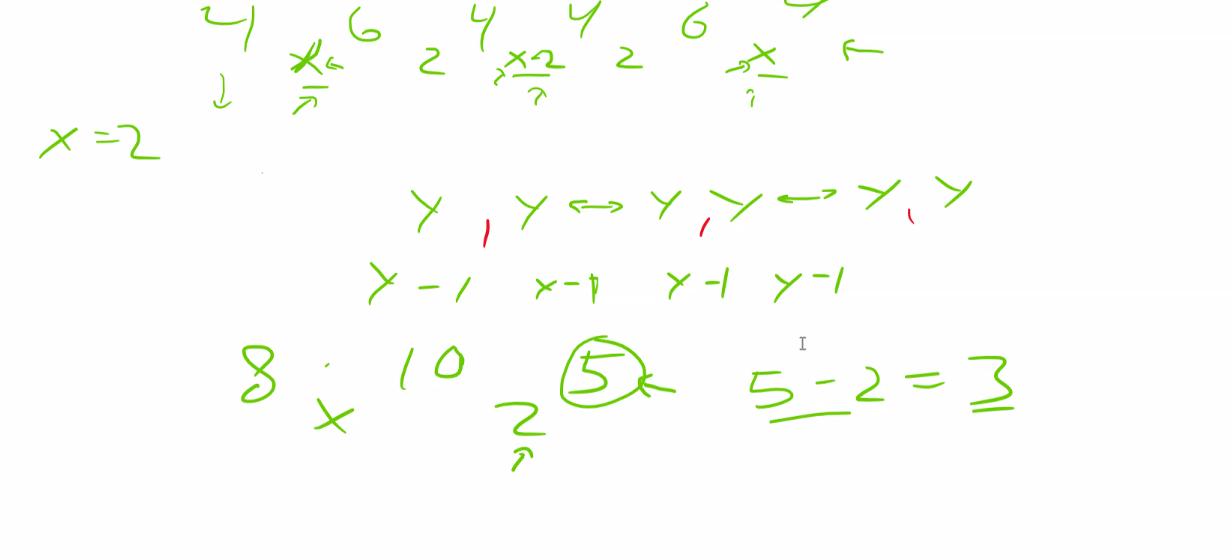 4 6 4 4 6
x 2 x-2 2 x
x=2
y , y ↔ y , y ↔ y , y
y-1 x-1 y-1 y-1
8 10 5 5-2=3
x 2